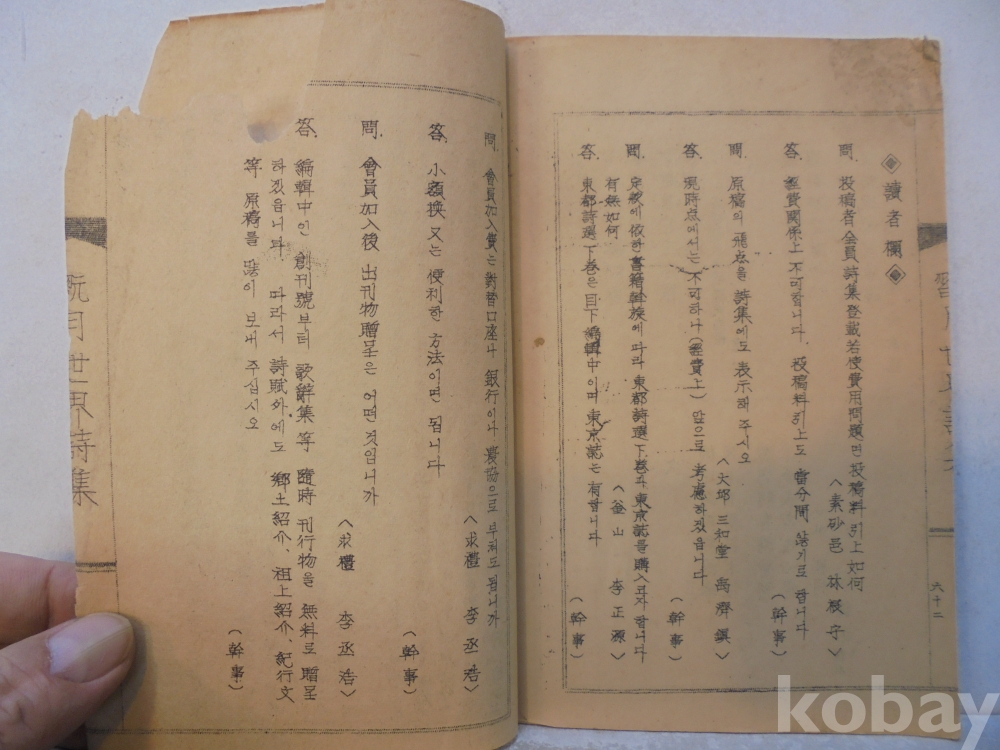 ◈ 讀者欄 ◈
問. 投稿者会員詩集登載若使費用問題면 投稿料引上如何
〈素砂邑 林 守〉
答. 經費関係上 不可합니다. 投稿料引上도 當今間 않기로 합니다
(幹事)
問. 原稿의 飛点을 詩集에도 表示해 주시오
〈大邱 三和堂 禹濟鎭〉
答. 現時点에서는 不可하나 (經費上) 앞으로 考慮하겠읍니다
(幹事)
問. 에 依한 書籍斡旋에 따라 東都詩選下卷과 東京誌를 購入코자 합니다
有無如何
〈釜山 李正源〉
答. 東都詩選下卷은 目下 編輯中이며 東京誌는 有합니다
(幹事)
六十二
問. 會員加入費는 對替口座나 銀行이나 農協으로 부쳐도 됩니까
〈求禮 李丞浩〉
答. 小額換 又는 便利한 方法이면 됩니다
(幹事)
問. 會員加入後 出刊物贈呈은 어떤 것입니까
〈求禮 李丞浩〉
答. 編輯中인 創刊號부터 歌辭集等 隨時 刊行物을 無料로 贈呈
하겠읍니다 따라서 詩賦外에도 鄕土紹介、祖上紹介、紀行文
等 原稿를 많이 보내 주십시오
(幹事)
月世 詩集
kobay